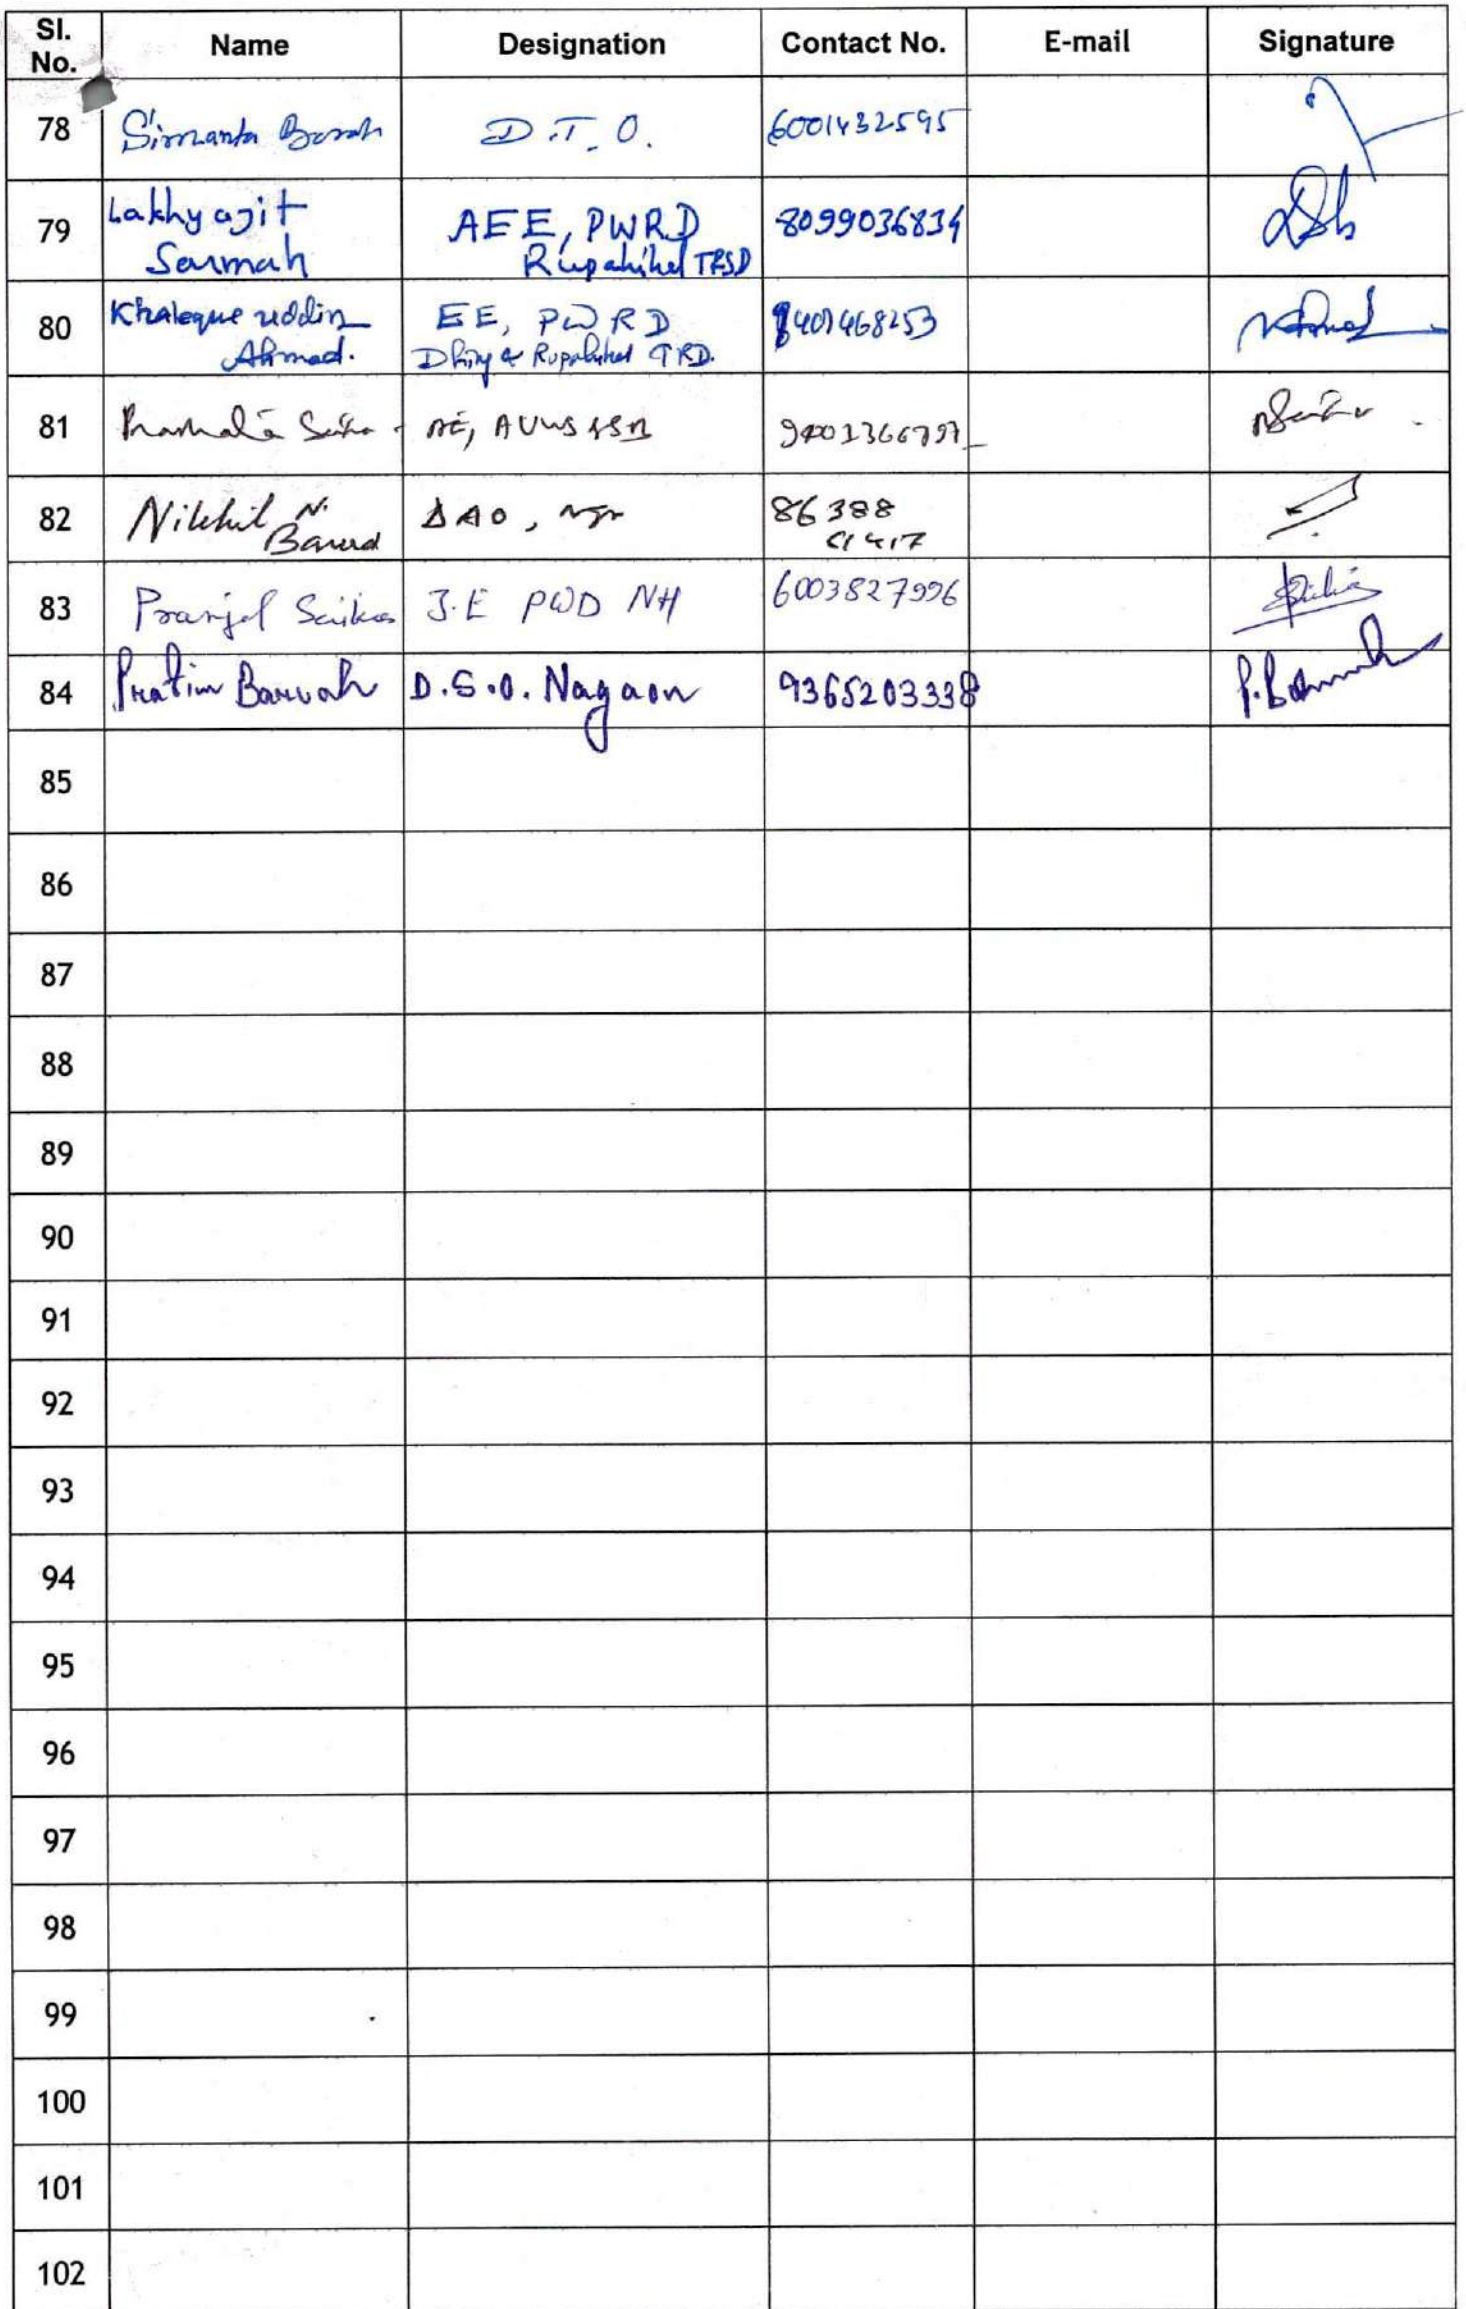 Sl. No. Name Designation Contact No. E-mail Signature
78 Simanta Borah D.T.O. 6001432595
79 Lakhyajit Sarmah AEE, PWRD Rupahihat TRSD 8099036834
80 Khaleque uddin Ahmed. EE, PWRD Dhing & Rupahihat TRD. 8401468253
81 AE,
82 Nikhil N. Barua DAO, 86388
83 Pranjal Saikia J.E PWD NH 6003827996
84 Pratim Baruah D.S.O. Nagaon 9365203338 P. Baruah
85
86
87
88
89
90
91
92
93
94
95
96
97
98
99
100
101
102